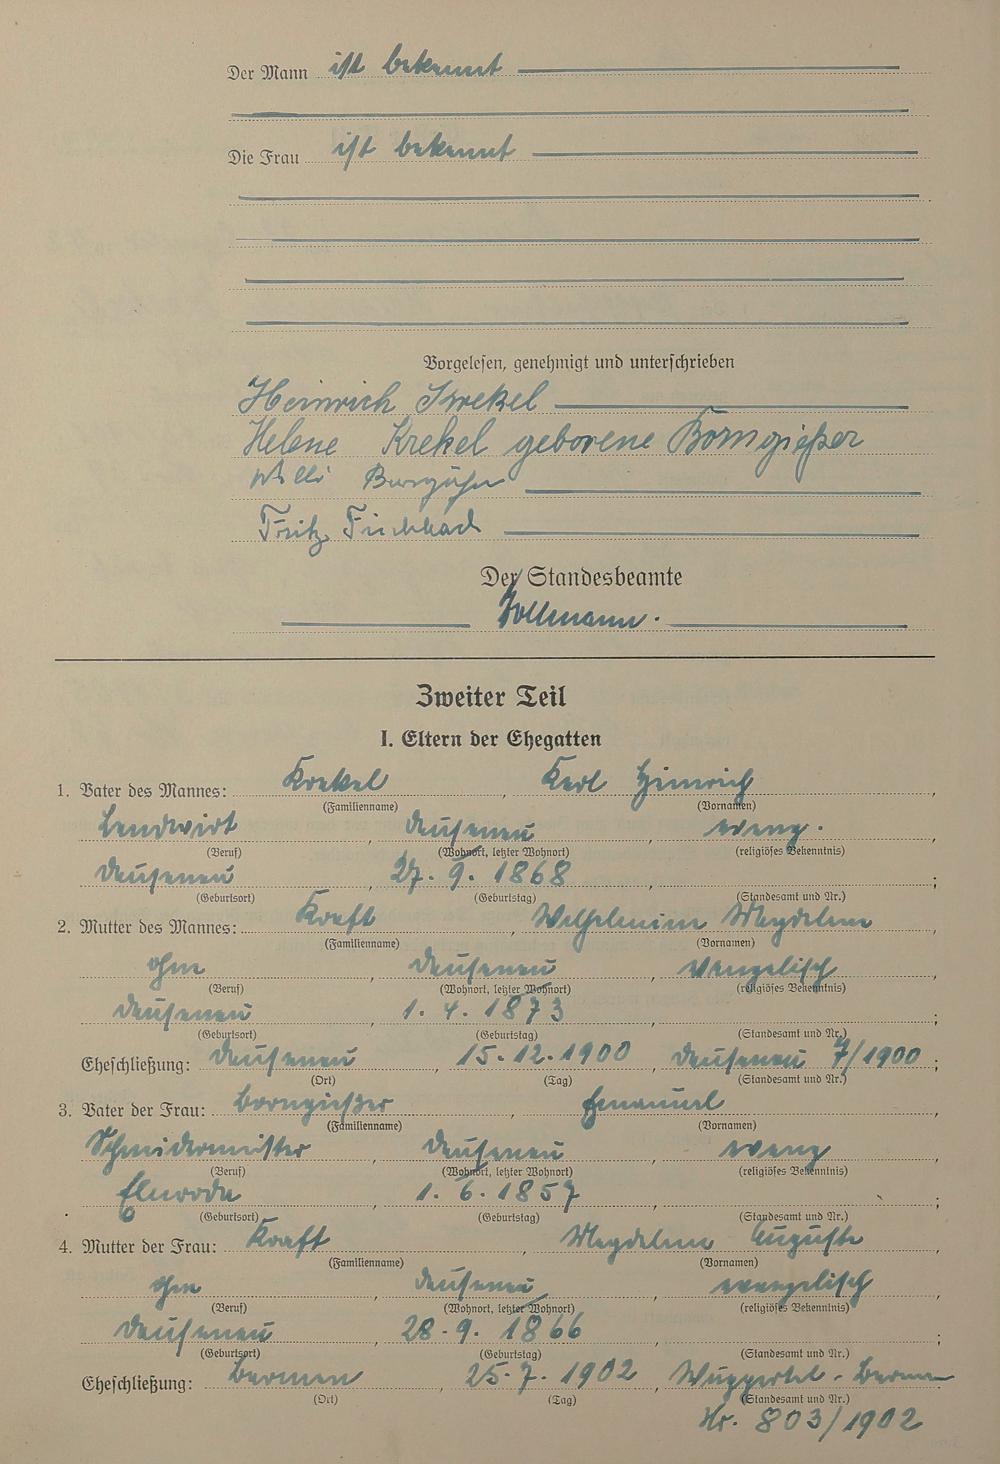 Der Mann ist bekannt
Die Frau ist bekannt
Vorgelesen, genehmigt und unterschrieben
Heinrich Krekel
Helene Krekel geborene Borngießer
Willi
Fritz Fischbach
Der Standesbeamte
Vollmann.
Zweiter Teil
I. Eltern der Ehegatten
1. Vater des Mannes: Krekel, Karl Heinrich,
(Familienname) (Vornamen)
Landwirt, Dausenau, evang.
(Beruf) (Wohnort, letzter Wohnort) (religiöses Bekenntnis)
Dausenau, 27. 9. 1868, ;
(Geburtsort) (Geburtstag) (Standesamt und Nr.)
2. Mutter des Mannes: Kraft, Wilhelmine Magdalene,
(Familienname) (Vornamen)
ohne, Dausenau, evangelisch,
(Beruf) (Wohnort, letzter Wohnort) (religiöses Bekenntnis)
Dausenau, 1. 4. 1873, ;
(Geburtsort) (Geburtstag) (Standesamt und Nr.)
Eheschließung: Dausenau, 15. 12. 1900, Dausenau 7/1900;
(Ort) (Tag) (Standesamt und Nr.)
3. Vater der Frau: Borngießer, Emanuel,
(Familienname) (Vornamen)
Schneidermeister, Dausenau, evang,
(Beruf) (Wohnort, letzter Wohnort) (religiöses Bekenntnis)
1. 6. 1857, ;
(Geburtsort) (Geburtstag) (Standesamt und Nr.)
4. Mutter der Frau: Kraft, Magdalene Auguste,
(Familienname) (Vornamen)
ohne, Dausenau, evangelisch,
(Beruf) (Wohnort, letzter Wohnort) (religiöses Bekenntnis)
Dausenau, 28. 9. 1866, ;
(Geburtsort) (Geburtstag) (Standesamt und Nr.)
Eheschließung: Barmen, 25. 7. 1902, Wuppertal-Barmen
(Ort) (Tag) (Standesamt und Nr.)
Nr. 803/1902